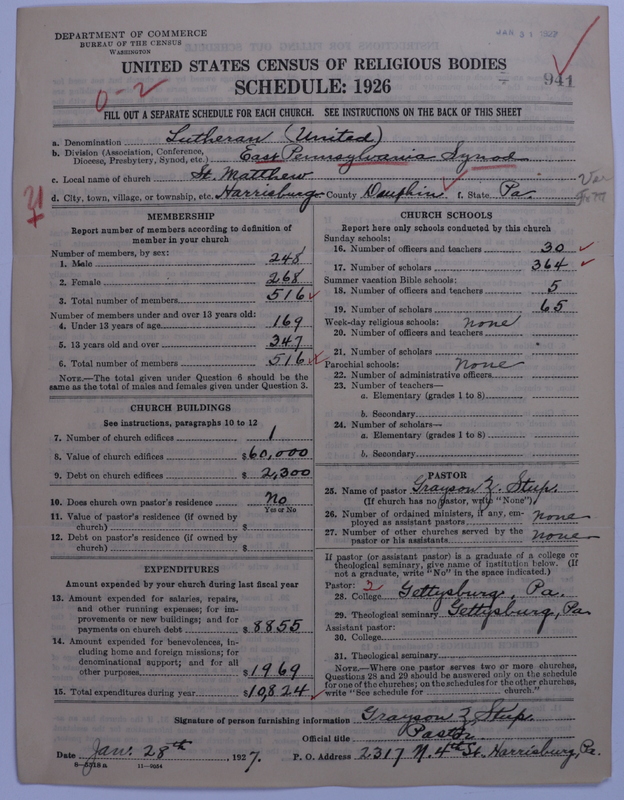 DEPARTMENT OF COMMERCE
BUREAU OF THE CENSUS
WASHINGTON
JAN 31 1927
941
UNITED STATES CENSUS OF RELIGIOUS BODIES
SCHEDULE: 1926
0-2
FILL OUT A SEPARATE SCHEDULE FOR EACH CHURCH. SEE INSTRUCTIONS ON THE BACK OF THIS SHEET
a. Denomination Lutheran (United)
b. Division (Association, Conference, Diocese, Presbytery, Synod, etc.) East Pennsylvania Synod
c. Local name of church St. Matthew
d. City, town, village, or township, etc. Harrisburg County Dauphin f. State Pa.
31
MEMBERSHIP
Report number of members according to definition of
member in your church
Number of members, by sex:
1. Male 248
2. Female 268
3. Total number of members 516
Number of members under and over 13 years old:
4. Under 13 years of age 169
5. 13 years old and over 347
6. Total number of members 516
NOTE.—The total given under Question 6 should be the
same as the total of males and females given under Question 3.
CHURCH BUILDINGS
See instructions, paragraphs 10 to 12
7. Number of church edifices 1
8. Value of church edifices $60,000
9. Debt on church edifices $2,300
10. Does church own pastor's residence No
Yes or No
11. Value of pastor's residence (if owned by
church) $
12. Debt on pastor's residence (if owned by
church) $
EXPENDITURES
Amount expended by your church during last fiscal year
13. Amount expended for salaries, repairs,
and other running expenses; for im-
provements or new buildings; and for
payments on church debt $8855
14. Amount expended for benevolences, in-
cluding home and foreign missions; for
denominational support; and for all
other purposes $1969
15. Total expenditures during year $10,824
CHURCH SCHOOLS
Report here only schools conducted by this church
Sunday schools:
16. Number of officers and teachers 30
17. Number of scholars 364
Summer vacation Bible schools:
18. Number of officers and teachers 5
19. Number of scholars 65
Week-day religious schools: none
20. Number of officers and teachers
21. Number of scholars
Parochial schools: None
22. Number of administrative officers
23. Number of teachers—
a. Elementary (grades 1 to 8)
b. Secondary
24. Number of scholars—
a. Elementary (grades 1 to 8)
b. Secondary
PASTOR
25. Name of pastor Grayson Z. Stup.
(If church has no pastor, write "None")
26. Number of ordained ministers, if any, em-
ployed as assistant pastors none
27. Number of other churches served by the
pastor or his assistants none
If pastor (or assistant pastor) is a graduate of a college or
theological seminary, give name of institution below. (If
not a graduate, write "No" in the space indicated.)
Pastor: 2
28. College Gettysburg, Pa.
29. Theological seminary Gettysburg, Pa
Assistant pastor:
30. College
31. Theological seminary
NOTE.—Where one pastor serves two or more churches,
Questions 28 and 29 should be answered only on the schedule
for one of the churches; on the schedules for the other churches,
write "See schedule for church."
Signature of person furnishing information Grayson Z. Stup.
Official title Pastor
Date Jan. 28th, 1927. P. O. Address 2317 N. 4th St. Harrisburg, Pa.
11—9034